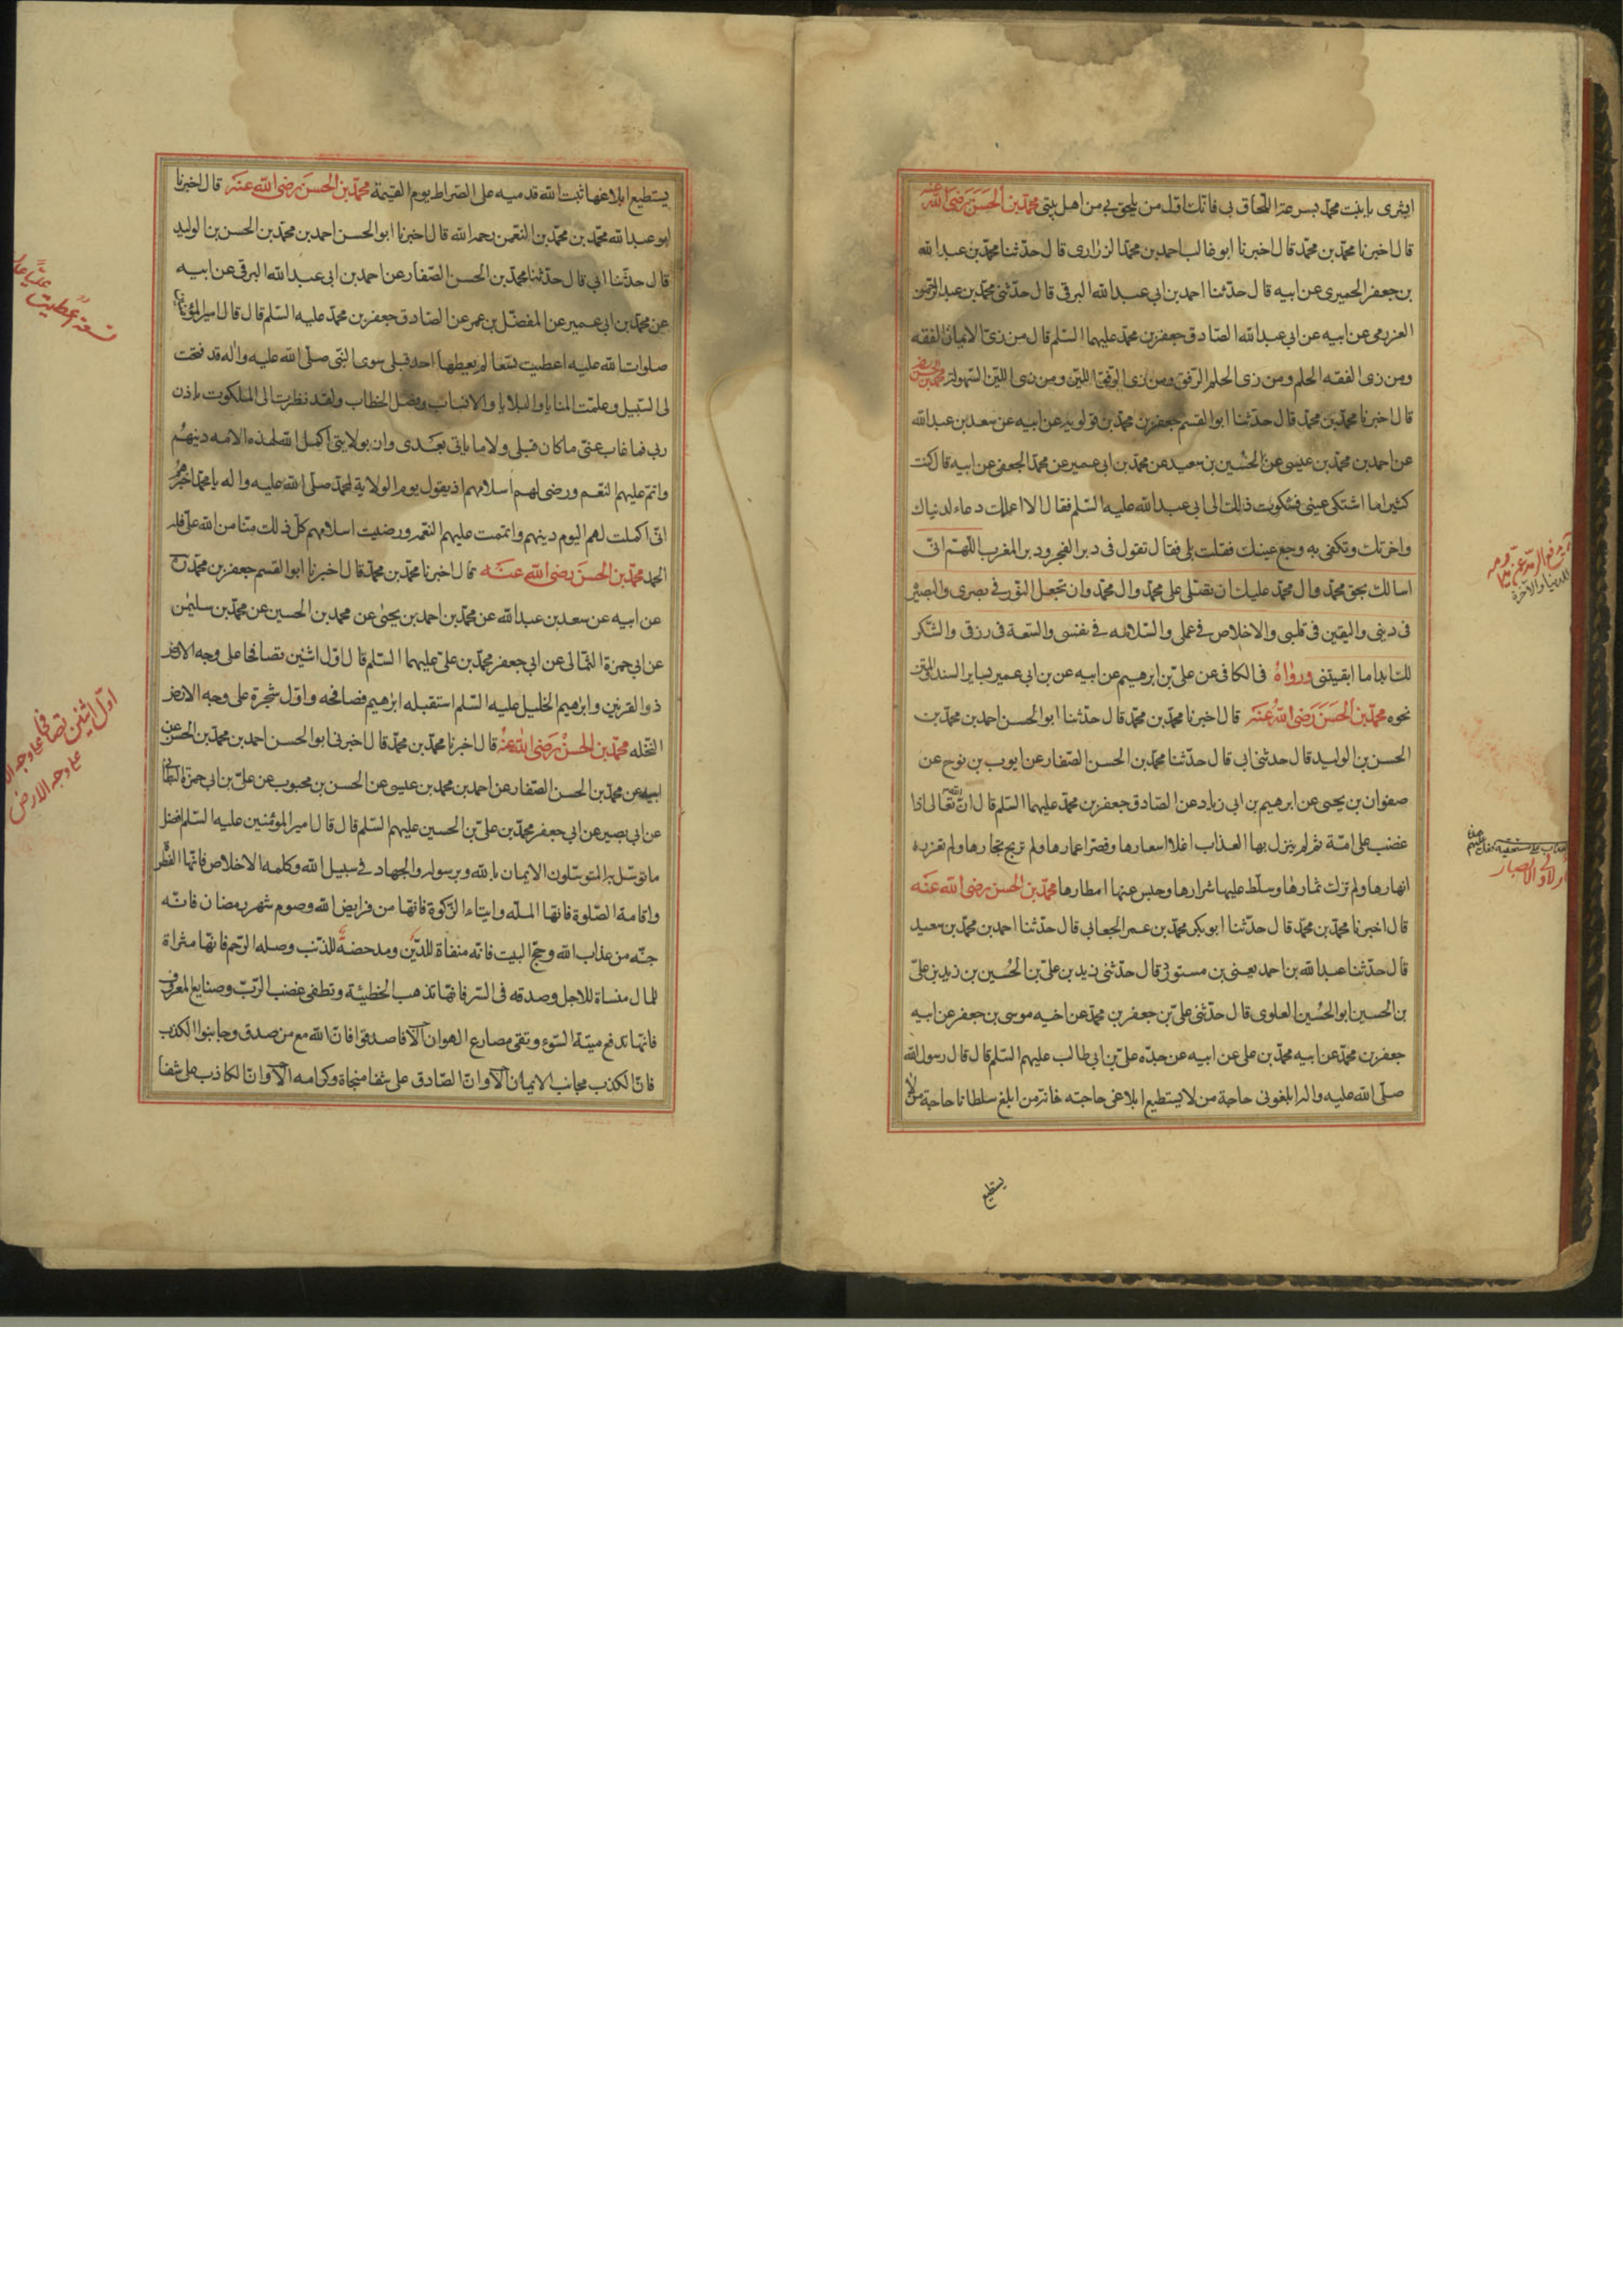 ابشرى يا بنت محمد بسرعة اللحاق بى فانك اول من يلحق بى من اهل بيتى محمد بن الحسن رضى الله عنه
قال اخبرنا محمد بن محمد قال اخبرنا ابو غالب احمد بن محمد الزرارى قال حدثنا محمد بن عبد الله
بن جعفر الحميرى عن ابيه قال حدثنا احمد بن ابى عبد الله البرقى قال حدثنى محمد بن عبد الرحمن
العزرمى عن ابيه عن ابى عبد الله الصادق جعفر بن محمد عليهما السلم قال من زى الايمان الفقه
ومن زى الفقه الحلم ومن زى الحلم الرفق ومن زى الرفق اللين ومن زى اللين السهولة محمد بن الحسن
قال اخبرنا محمد بن محمد قال حدثنا ابو القسم جعفر بن محمد بن قولويه عن ابيه عن سعد بن عبد الله
عن احمد بن محمد بن عيسى عن الحسين بن سعيد عن محمد بن ابى عمير عن محمد الجعفى عن ابيه قال كنت
كثيرا ما اشتكى عينى فشكوت ذلك الى ابى عبد الله عليه السلم فقال الا اعلمك دعاء لدنياك
واخرتك وتكفى به وجع عينك فقلت بلى فقال تقول فى دبر الفجر ودبر المغرب اللهم انى
اسالك بحق محمد وال محمد عليك ان تصلى على محمد وال محمد وان تجعل النور فى بصرى والبصيرة
فى دينى واليقين فى قلبى والاخلاص فى عملى والسلامه فى نفسى والسعة فى رزقى والشكر
لك ابدا ما ابقيتنى ورواه فى الكافى عن على بن ابرهيم عن ابيه عن بن ابى عمير بساير السند المتن
نحوه محمد بن الحسن رضى الله عنه قال اخبرنا محمد بن محمد قال حدثنا ابو الحسن احمد بن محمد بن
الحسن بن الوليد قال حدثنى ابى قال حدثنا محمد بن الحسن الصفار عن ايوب بن نوح عن
صفوان بن يحيى عن ابرهيم بن ابى زياد عن الصادق جعفر بن محمد عليهما السلم قال ان الله تعالى اذا
غضب على امة ثم لم ينزل بها العذاب اغلا اسعارها وقصر اعمارها ولم تربح تجارها ولم تغزر
انهارها ولم تزك ثمارها وسلط عليها شرارها وحبس عنها امطارها محمد بن الحسن رضى الله عنه
قال اخبرنا محمد بن محمد قال حدثنا ابو بكر محمد بن عمر الجعابى قال حدثنا احمد بن محمد بن سعيد
قال حدثنا عبد الله بن احمد يعنى بن مستورد قال حدثنى زيد بن على بن الحسين بن زيد بن على
بن الحسين ابو الحسين العلوى قال حدثنى على بن جعفر بن محمد عن اخيه موسى بن جعفر عن ابيه
جعفر بن محمد عن ابيه محمد بن على عن ابيه عن جده على بن ابى طالب عليهم السلم قال قال رسول الله
صلى الله عليه واله ابلغونى حاجة من لا يستطيع ابلاغى حاجته فانه من ابلغ سلطانا حاجة من لا
يستطيع
يستطيع ابلاغها ثبت الله قدميه على الصراط يوم القيمة محمد بن الحسن رضى الله عنه قال اخبرنا
ابو عبد الله محمد بن محمد بن النعمن رحمه الله قال اخبرنا ابو الحسن احمد بن محمد بن الحسن بن الوليد
قال حدثنا ابى قال حدثنا محمد بن الحسن الصفار عن احمد بن ابى عبد الله البرقى عن ابيه
عن محمد بن ابى عمير عن المفضل بن عمر عن الصادق جعفر بن محمد عليه السلم قال قال امير المؤمنين
صلوات الله عليه اعطيت تسعا لم يعطها احد قبلى سوى النبى صلى الله عليه واله قد فتحت
لى السبيل وعلمت المنايا والبلايا والانساب وفصل الخطاب ولقد نظرت الى الملكوت باذن
ربى فما غاب عنى ما كان قبلى ولا ما ياتى بعدى وان بولايتى اكمل الله لهذه الامه دينهم
واتم عليهم النعم ورضى لهم اسلامهم اذ يقول يوم الولاية لمحمد صلى الله عليه واله يا محمد اخبرهم
انى اكملت لهم اليوم دينهم واتممت عليهم النعمه ورضيت اسلامهم كل ذلك منا من الله على فله
الحمد محمد بن الحسن رضى الله عنه قال اخبرنا محمد بن محمد قال اخبرنا ابو القسم جعفر بن محمد
عن ابيه عن سعد بن عبد الله عن محمد بن احمد بن يحيى عن محمد بن الحسين عن محمد بن سليمن
عن ابى حمزة الثمالى عن ابى جعفر محمد بن على عليهما السلم قال اول اثنين تصافحا على وجه الارض
ذو القرنين وابرهيم الخليل عليه السلم استقبله ابرهيم فصافحه واول شجرة على وجه الارض
النخله محمد بن الحسن رضى الله عنه قال اخبرنا محمد بن محمد قال اخبرنى ابو الحسن احمد بن محمد بن الحسن عن
ابيه عن محمد بن الحسن الصفار عن احمد بن محمد بن عيسى عن الحسن بن محبوب عن على بن ابى حمزة
عن ابى بصير عن ابى جعفر محمد بن على بن الحسين عليهم السلم قال قال امير المؤمنين عليه السلم افضل
ما توسل به المتوسلون الايمان بالله وبرسوله والجهاد فى سبيل الله وكلمه الاخلاص فانها الفطرة
واقامة الصلوة فانها المله وايتاء الزكوة فانها من فرايض الله وصوم شهر رمضان فانه
جنه من عذاب الله وحج البيت فانه منفاة للدين ومدحضة للذنب وصله الرحم فانها مثراة
للمال منساة للاجل وصدقه فى السر فانها تذهب الخطيئة وتطفى غضب الرب وصنايع المعروف
فانها تدفع ميتة السوء وتقى مصارع الهوان الا فاصدقوا فان الله مع من صدق وجانبوا الكذب
فان الكذب مجانب الايمان الا وان الصادق على شفا منجاة وكرامه الا وان الكاذب على شفا
اول اثنين تصافحا
على وجه الارض